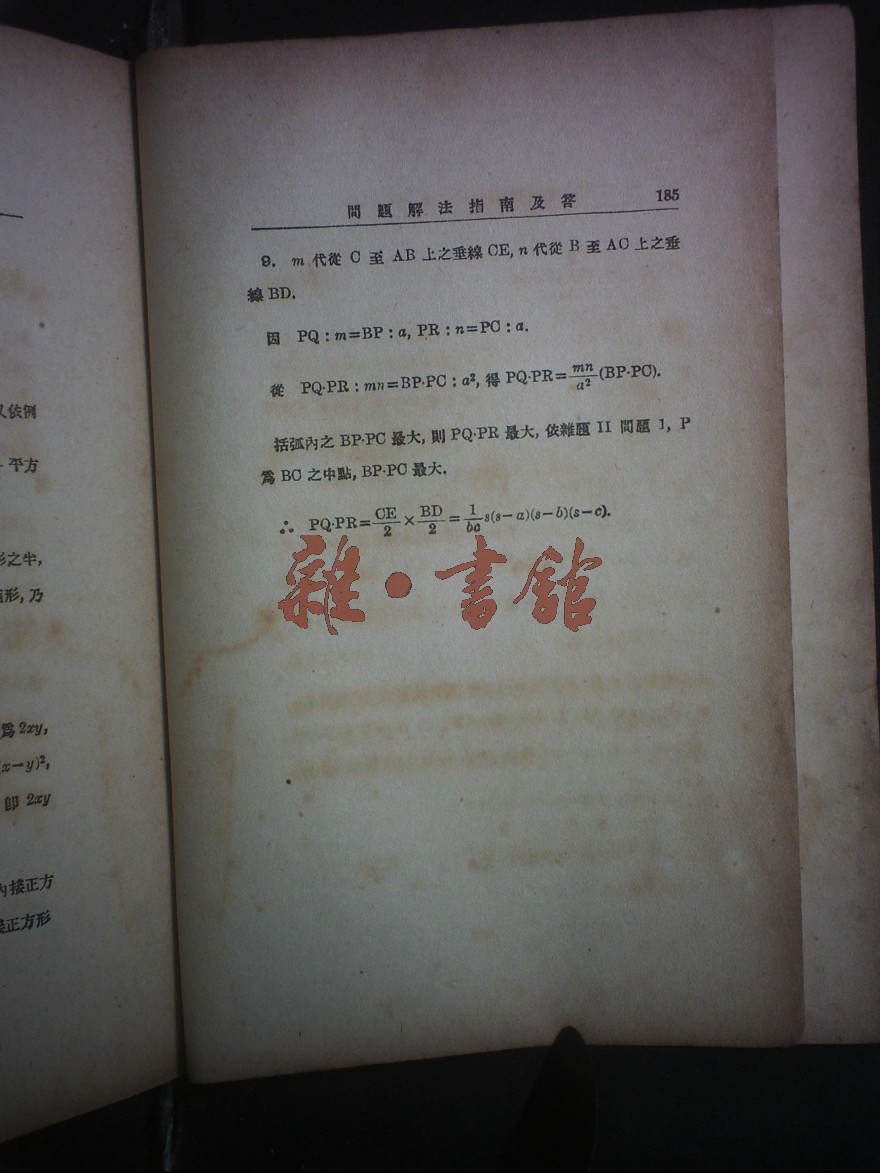 又依例
平方
形之半,
形, 乃
爲 2xy,
(x−y)²,
卽 2xy
內接正方
接正方形
問題解法指南及答 185
9. m 代從 C 至 AB 上之垂線 CE, n 代從 B 至 AC 上之垂
線 BD.
因 PQ : m=BP : a, PR : n=PC : a.
從 PQ·PR : mn=BP·PC : a², 得 PQ·PR=mn/a²(BP·PC).
括弧內之 BP·PC 最大, 則 PQ·PR 最大, 依雜題 II 問題 1, P
爲 BC 之中點, BP·PC 最大.
∴ PQ·PR=CE/2×BD/2=1/bc s(s−a)(s−b)(s−c).
雜·書館